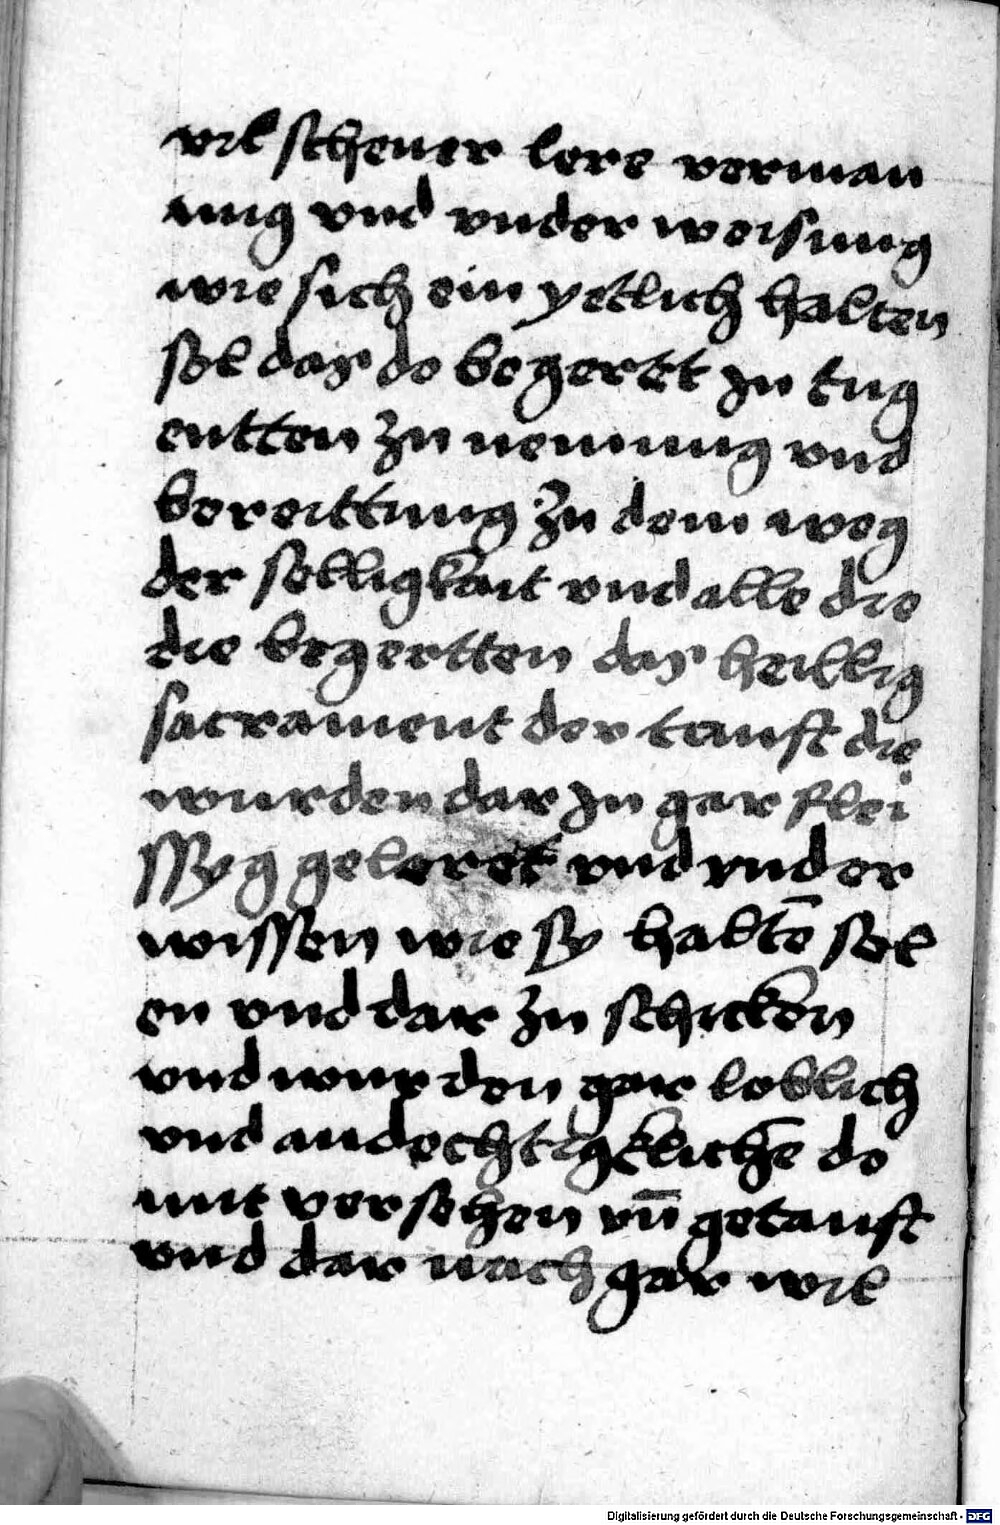 vil schener lere verman
ung vnd vnder weisung
wie sich ein yetlich halten
sol das do begertt zu tug
entten zu nemung vnd
bereittung zu dem weg
der selligkait vnd alle die
die begertten das heillig
sacrament der tauft die
wurden dar zu gar flei
ssyg geleret vnd vnder
wissen wie sy haltē sol
en vnd dar zu schicken
vnd wurden gar loblich
vnd andechtigklichē do
mit versehen vn̄ getauft
vnd dar nach gar vil
Digitalisierung gefördert durch die Deutsche Forschungsgemeinschaft - DFG